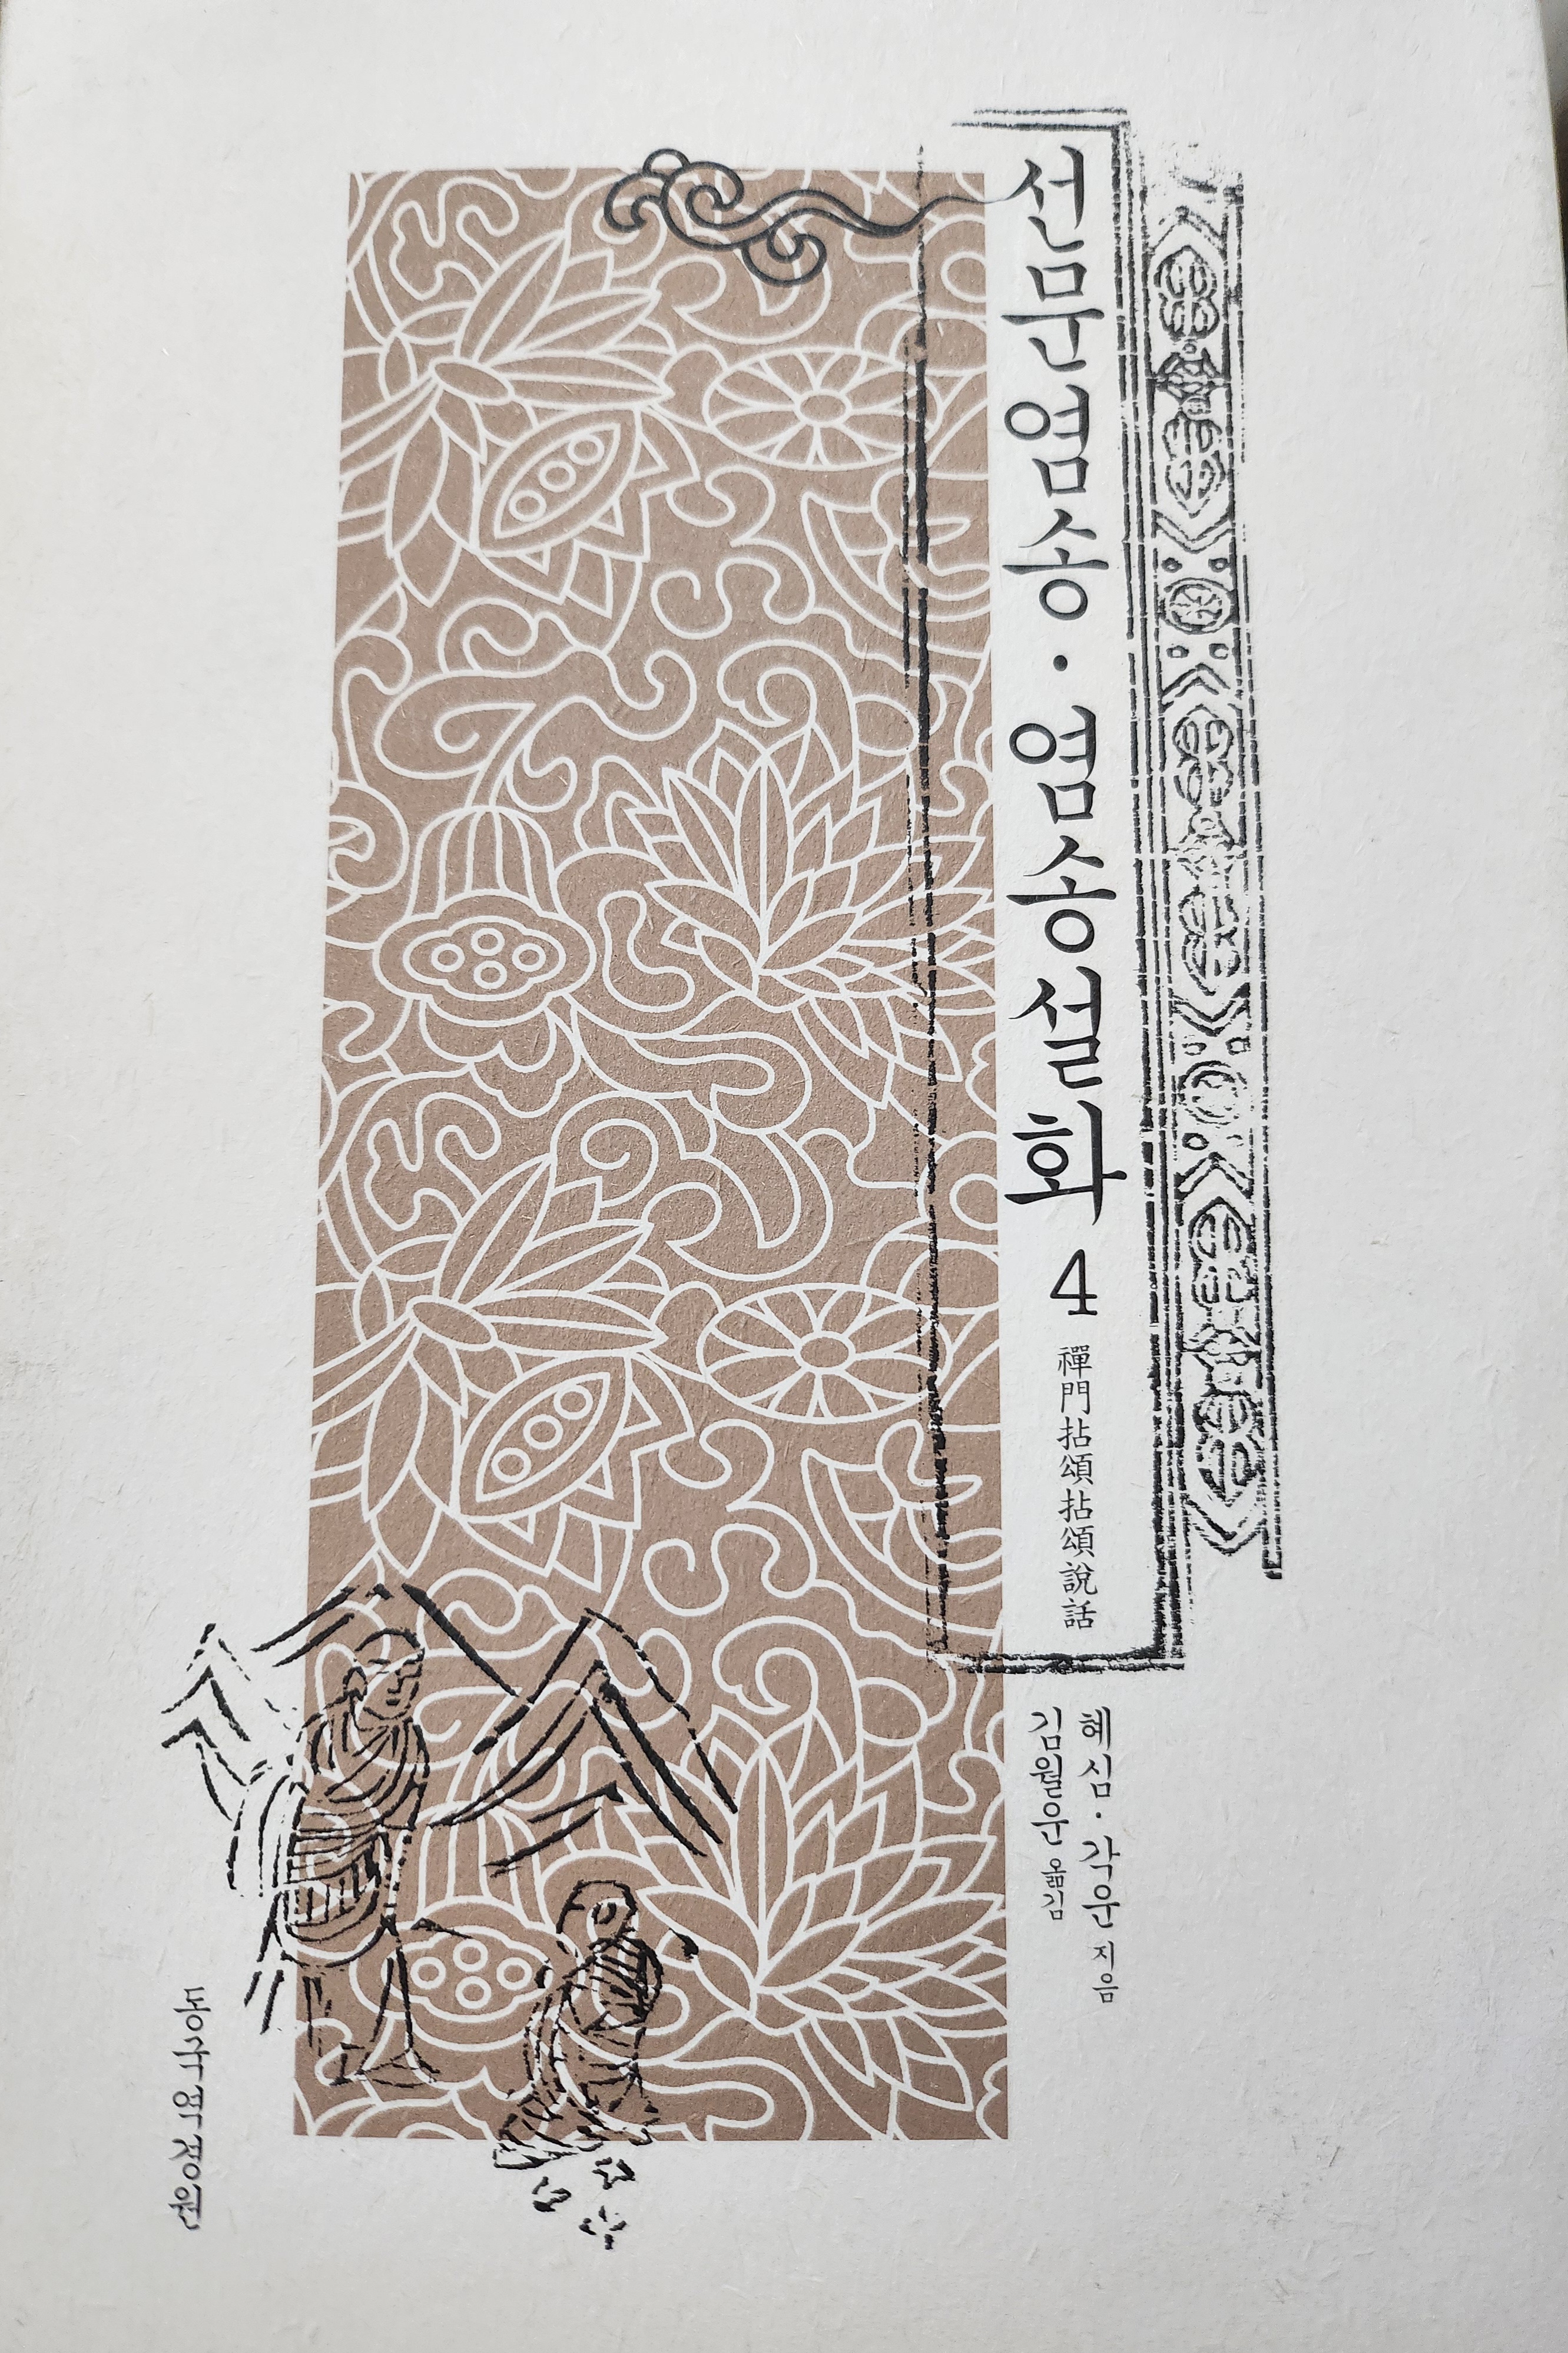 선문염송·염송설화 4 禪門拈頌拈頌說話
혜심·각운 지음
김월운 옮김
동국역경원